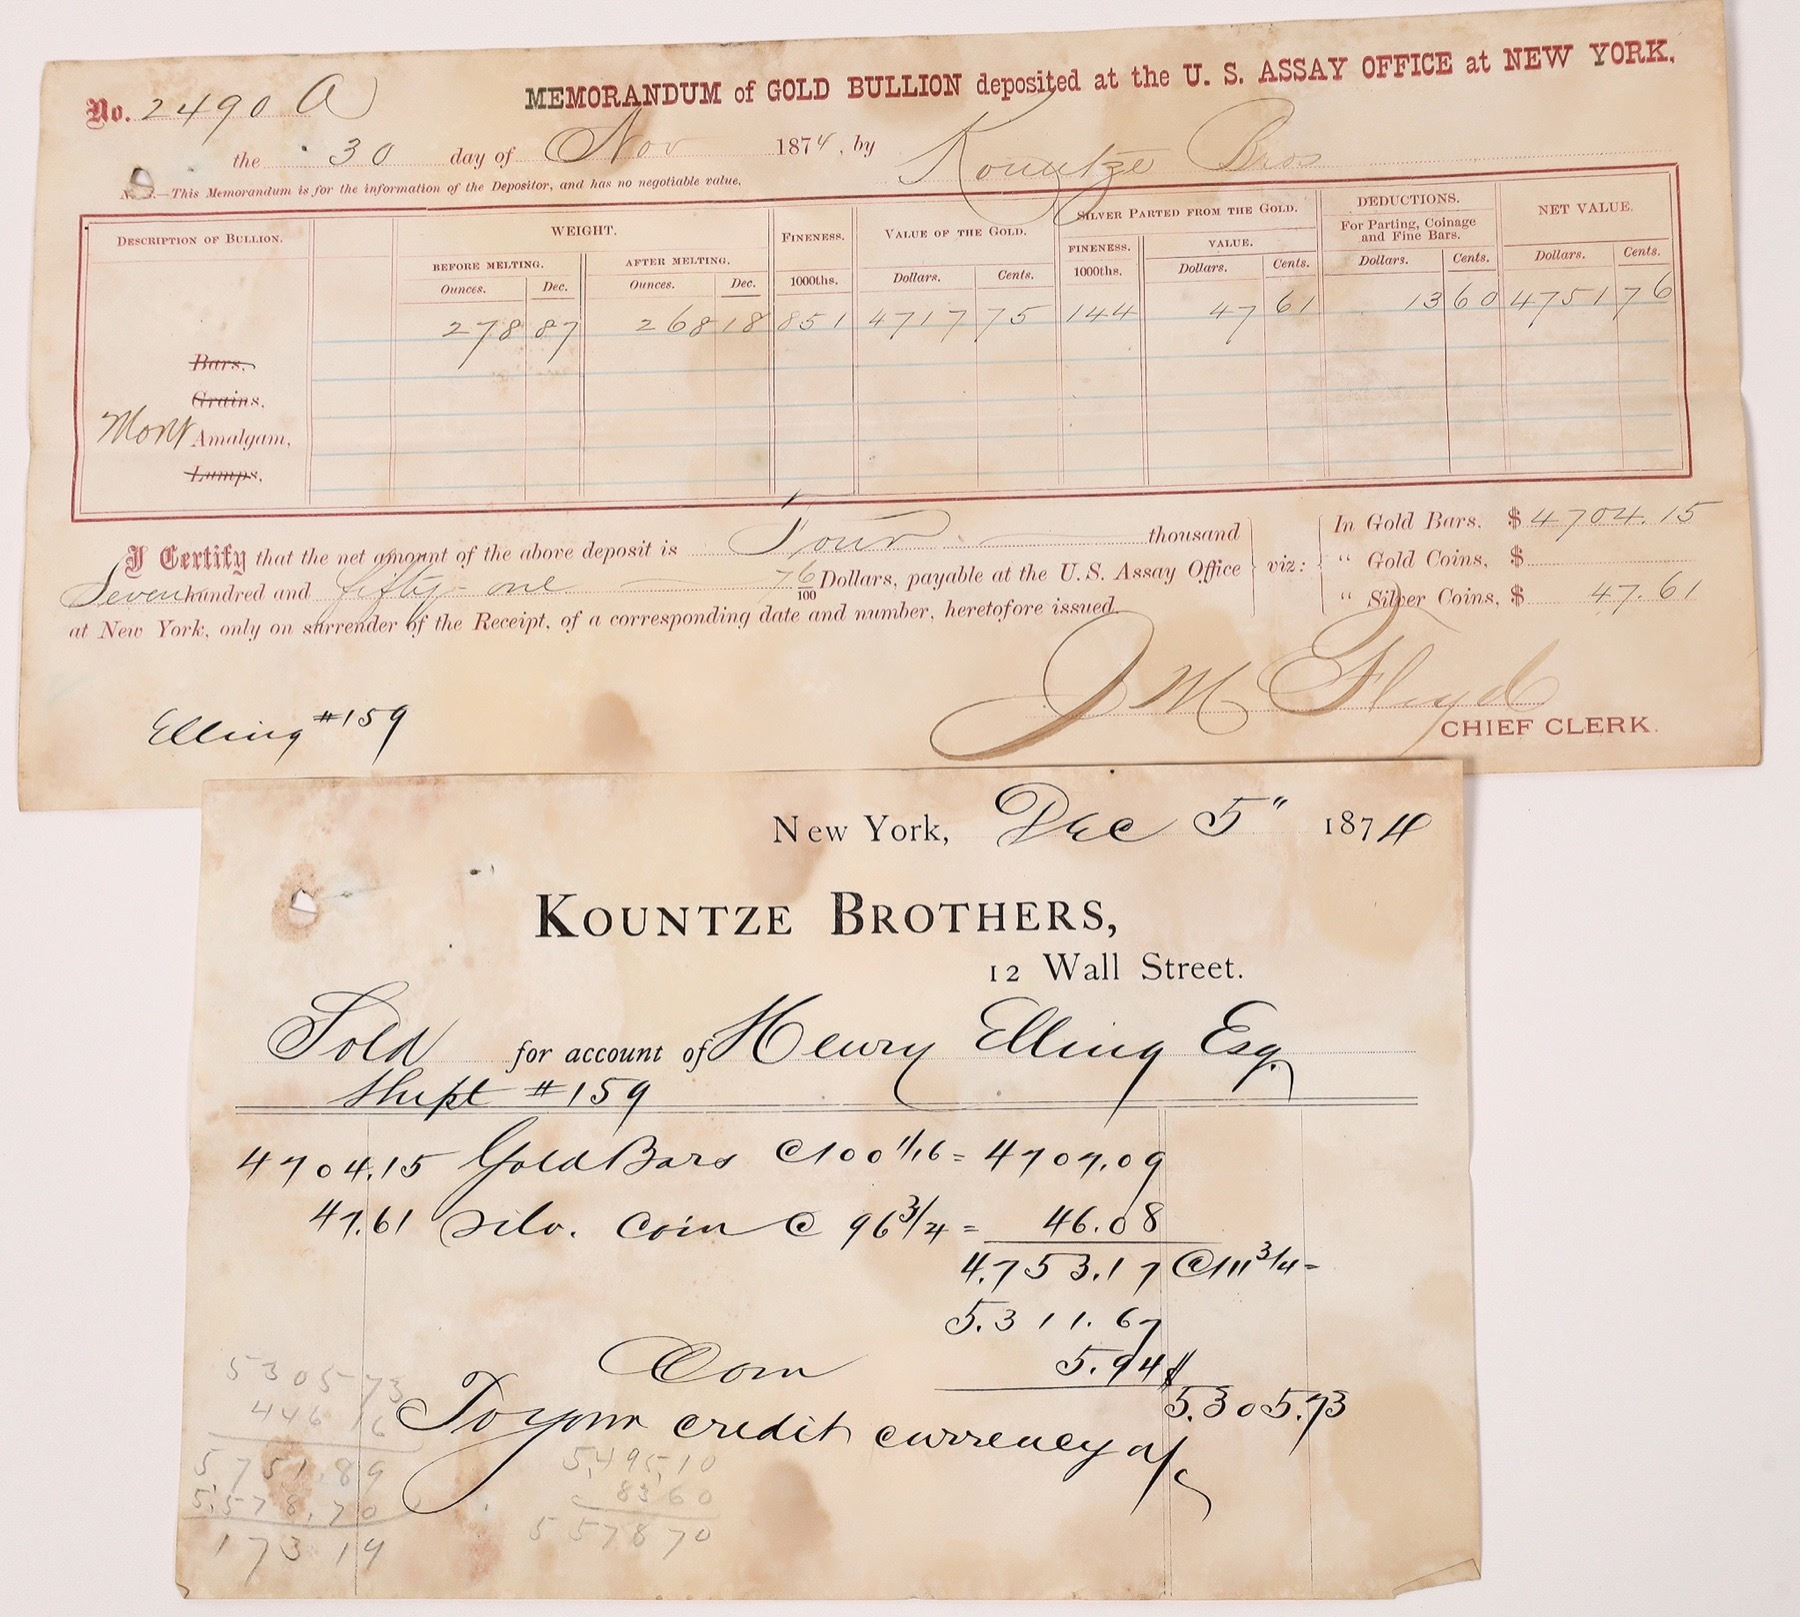 No. 2490 A
MEMORANDUM of GOLD BULLION deposited at the U. S. ASSAY OFFICE at NEW YORK,
the 30 day of Nov 1874, by Kountze Bros
N.B.—This Memorandum is for the information of the Depositor, and has no negotiable value.
DESCRIPTION OF BULLION. WEIGHT. FINENESS. VALUE OF THE GOLD. SILVER PARTED FROM THE GOLD. DEDUCTIONS. NET VALUE.
For Parting, Coinage and Fine Bars.
BEFORE MELTING. AFTER MELTING. FINENESS. VALUE.
Ounces. Dec. Ounces. Dec. 1000ths. Dollars. Cents. 1000ths. Dollars. Cents. Dollars. Cents. Dollars. Cents.
278 87 268 18 851 4717 75 144 47 61 13 60 4751 76
Bars.
Grains.
Mont Amalgam,
Lumps.
I Certify that the net amount of the above deposit is Four thousand
Seven hundred and fifty-one 76/100 Dollars, payable at the U.S. Assay Office
at New York, only on surrender of the Receipt, of a corresponding date and number, heretofore issued.
viz:
In Gold Bars, $ 4704.15
" Gold Coins, $
" Silver Coins, $ 47.61
J M Floyd
CHIEF CLERK.
Elling #159
New York, Dec 5" 1874
KOUNTZE BROTHERS,
12 Wall Street.
Sold for account of Henry Elling Esq.
Shipt #159
4704.15 Gold Bars @ 100 1/16 = 4707.09
47.61 Silv. Coin @ 96 3/4 = 46.08
4.753.17 @ 111 3/4 =
5.311.67
Com 5.94 $
5.305.73
To your credit currency a/c
5305 73
446 16
5,751.89
5,578,70
173 19
5,495,10
8360
5 578 70